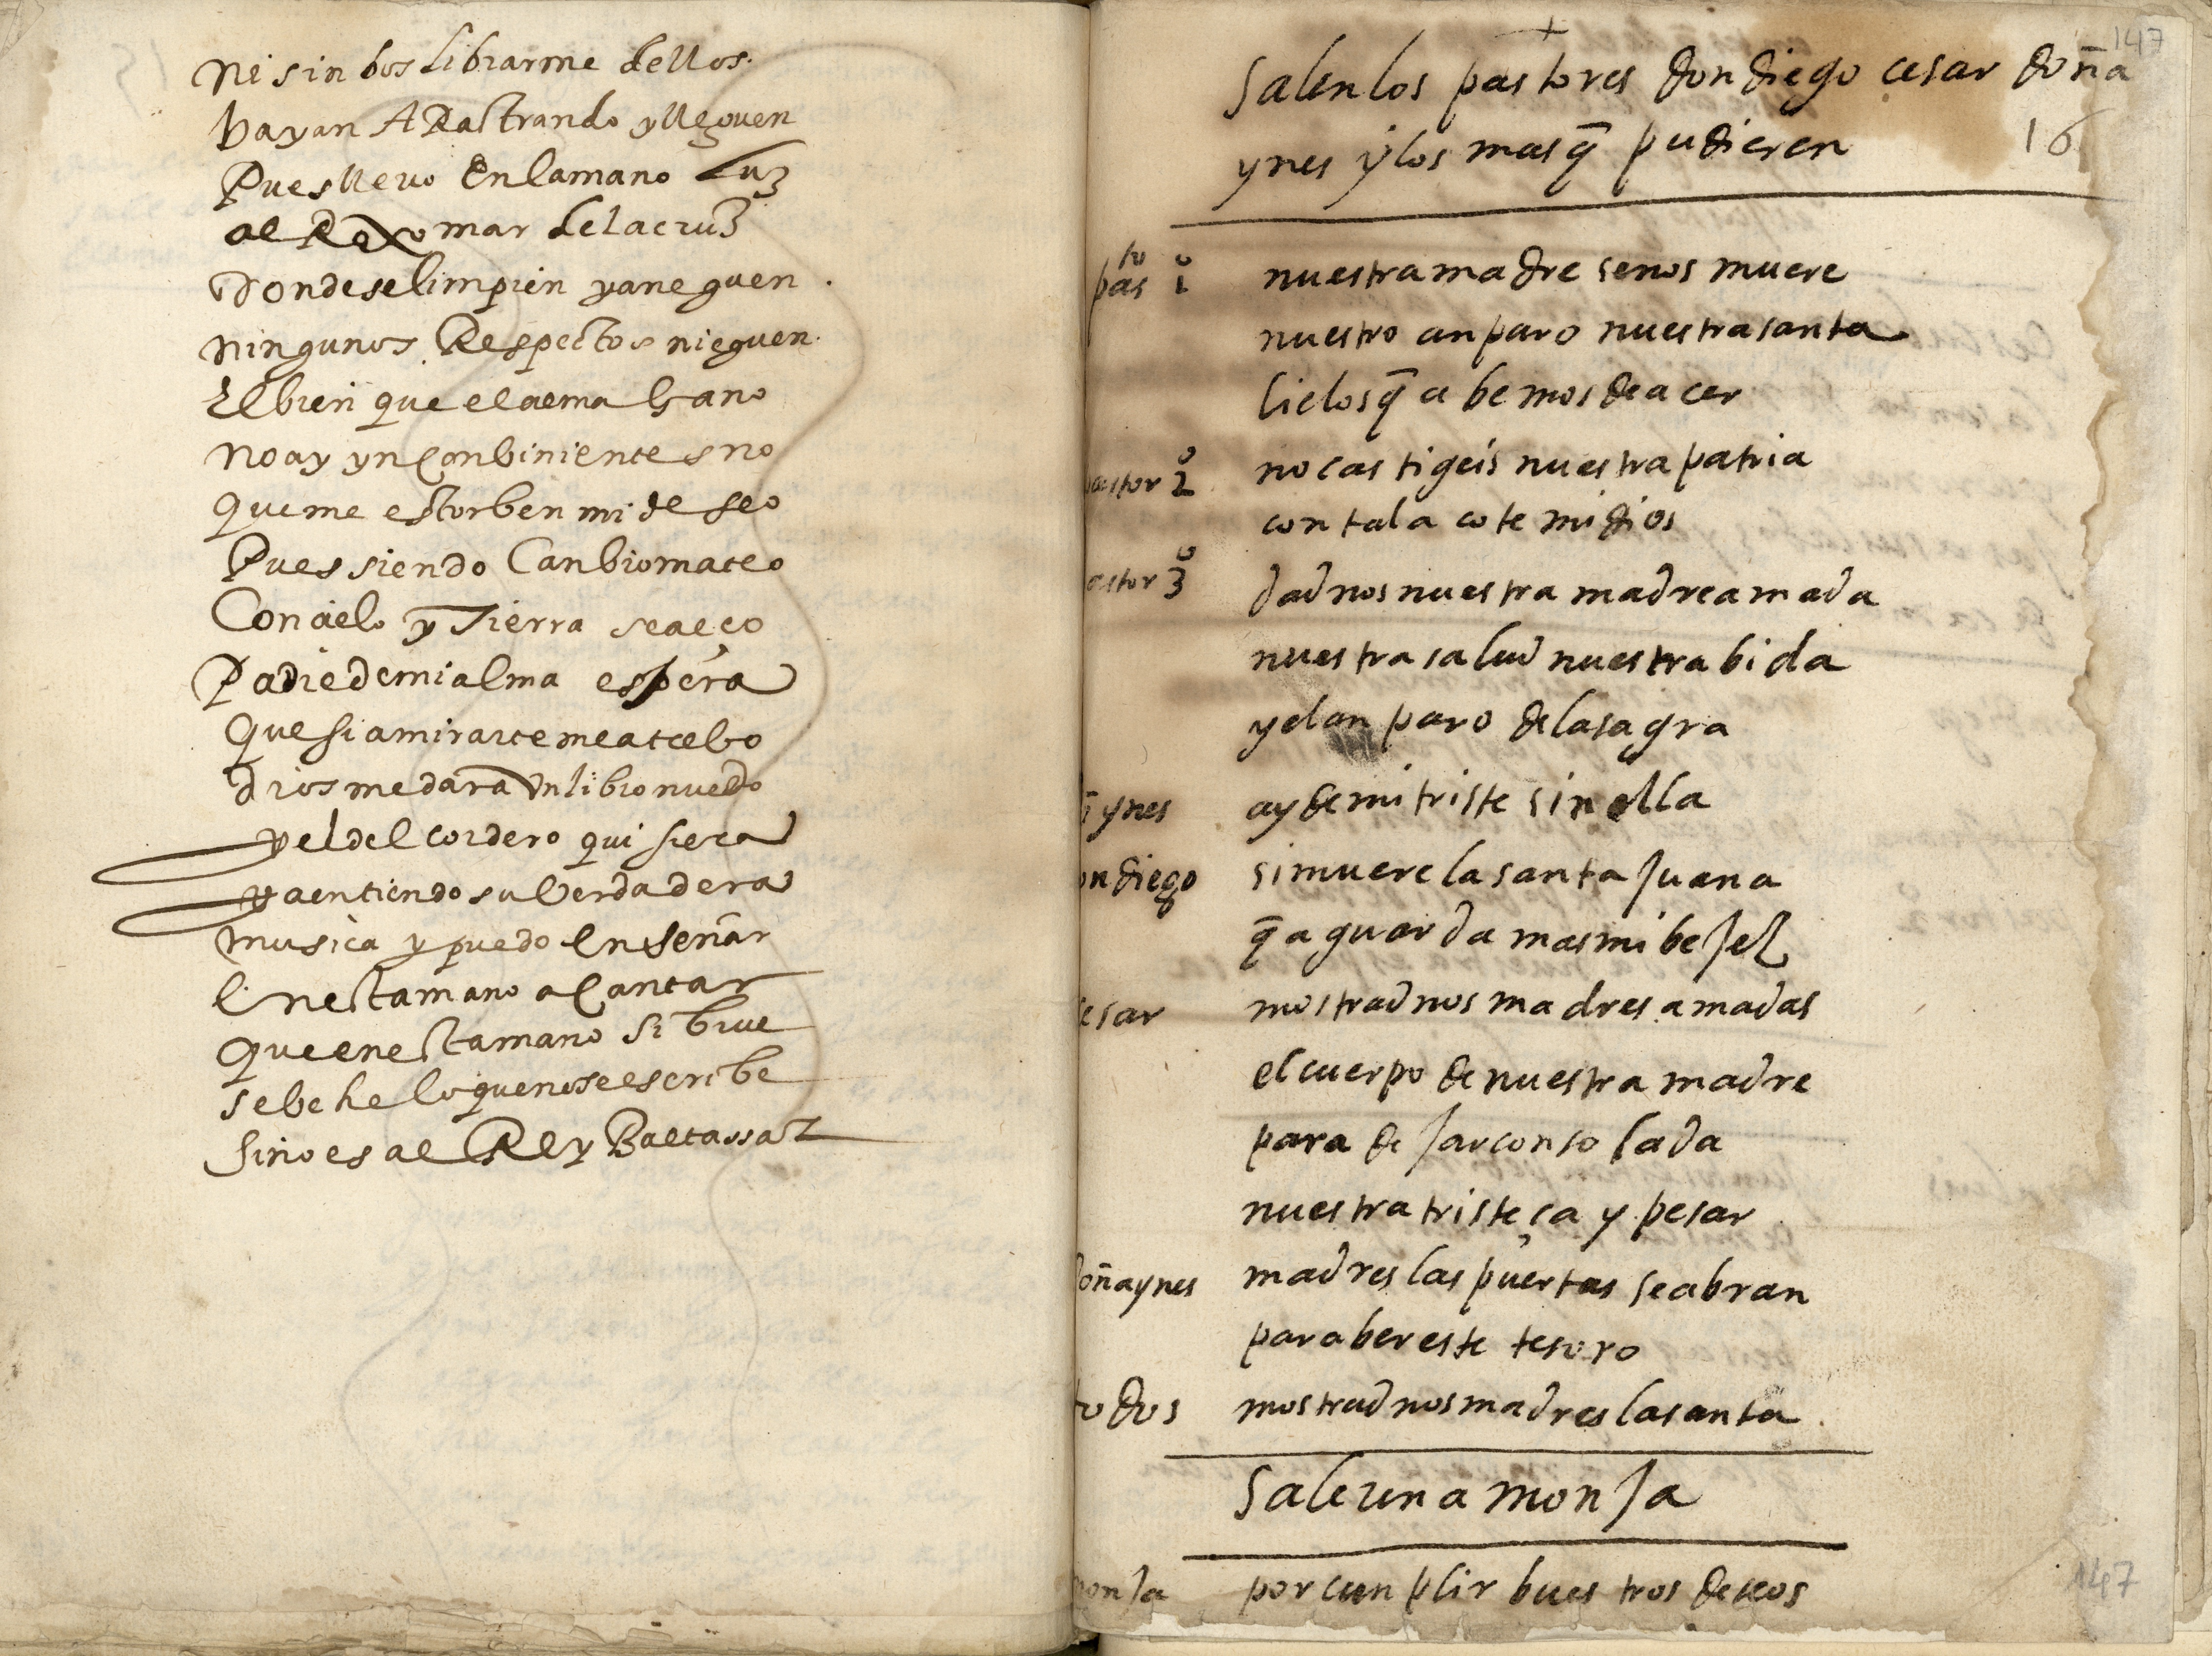 ni sin bos librarme dellos.
bayan A Rastrando y lleguen
Pues lleuo En la mano Luz
al Roxo mar de la cruz
donde se limpien y aneguen.
ningunos Respectos nieguen.
El bien que el alma Gano
no ay ynconbinientes no
que me estorben mi deseo
Pues siendo Canbio mateo
Con cielo y Tierra
Padre de mi alma espera
que si a mirarte me atrebo
dios me dara Vn libro nuebo
y el del cordero quisiera
ya entiendo su Verdadera
musica y puedo Enseñar
En esta mano a Cantar
que en esta mano si biue
se be he lo que no se escribe
sino es al Rey Baltassar
147
salen los pastores don diego cesar doña
ynes y los mas q̄ pudieren
16
pasto 1º nuestra madre se nos muere
nuestro anparo nuestra santa
cielos q̄ abemos de acer
astor 2º no castigeis nuestra patria
con tal acote mi dios
astor 3º dadnos nuestra madre amada
nuestra salud nuestra bida
y el anparo de la sagra
ynes ay de mi triste sin ella
on diego si muere la santa Juana
q̄ aguarda mas mi beJez
esar mostradnos madres amadas
el cuerpo de nuestra madre
para deJar consolada
nuestra tristeça y pesar
oña ynes madres las puertas se abran
para ber este tesoro
todos mostradnos madres la santa
sale una monJa
onJa por cunplir buestros deseos
147